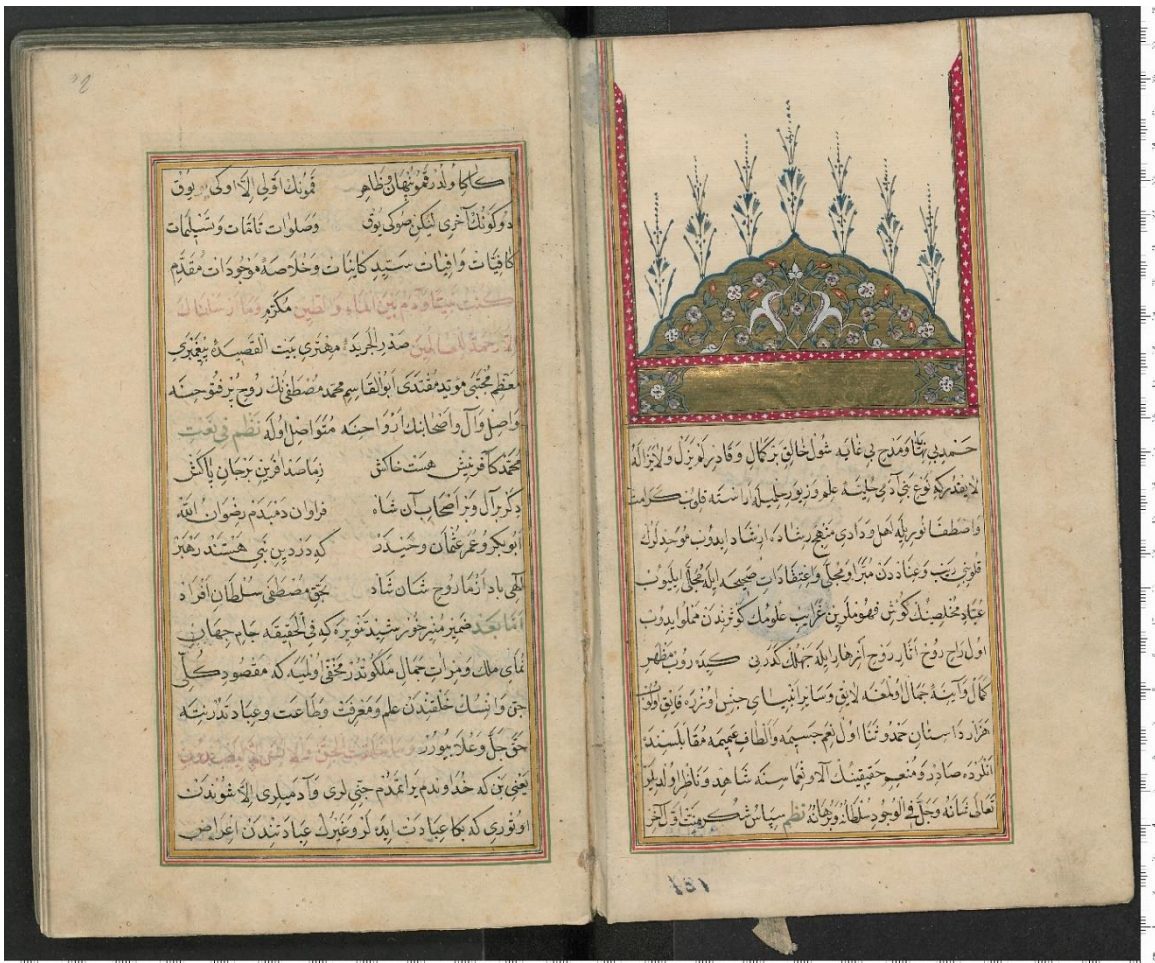 حمد بی نهایه و مدح بی غایه شول خالق بر کمال و قادر لم یزل و لا یزاله
لایقدر که نوع بنی آدمی حلیهٔ علم و زیور حلمیله اراسته قلوب کرامت
و اصطفا نوریله اهل ودادی منهج رشاده ارشاد ایدوب موحدلرك
قلوبنی ریب و عناددن مبرا و مخلی و اعتقادات صحیحه ایله مجلی ایلیوب
عباد مخلصینك كوش فهوملرین غرایب علومك كوثرندن مملو ایدوب
اول راح روح آثار روح ازهار ایله جهلك كدرنی كیدروب مظهر
كمال و آینهٔ جمال اولمغه لایق و سایر انبیای جنس اوزره فایق
هزار داستان حمد و ثنا اول نعم جسیمه و الطاف عمیمه مقابله سنده
انلرده صادر و منعم حقیقینك آلا و نعماسنه شاهد و ناظر اولدیلر
تعالی شانه و جل فی الوجود سلطانه و برهانه نظم سپاس شکر منت اول آخر
كاكا ولدر قمو پنهان و ظاهر قمونك اولی الا اوكی یوق
دو كونك آخری لیكن صوكی یوق و صلوات تامات و تسلیمات
كافیات وافیات سید كاینات و خلاصهٔ موجودات مقدم
كنت نبیا و آدم بین الماء و الطین مكرم وما ارسلناك
الا رحمة للعالمین صدر الجریده مهتری بیت القصیدهٔ پیغمبری
معظم مجتبی موید مقتدی ابو القاسم محمد مصطفی نك روح پر فتوحنه
واصل و آل و اصحابنك ارواحنه متواصل اوله نظم فی نعت
محمد كافرینش هست خاكش زما صد آفرین بر جان پاكش
دكر بر آل و بر اصحاب آن شاه فراوان دمبدم رضوان الله
ابو بكر و عمر عثمان و حیدر كه در دین نبی هستند رهبر
الهی باد از ما روح شان شاد بحق مصطفی سلطان افراد
اما بعد ضمیر منیر خورشید تنویره كه فی الحقیقه جام جهان
نمای ملك و مرات جمال ملكوتدر مخفی اولمیه كه مقصود كلی
جن و انسك خلقندن علم و معرفت و طاعت و عبادتدر نته
حق جل و علا بیورر وما خلقت الجن و الانس الا لیعبدون
یعنی بن كه خداوندم یراتمدم جنی لری و آدمیلری الا شوندن
اوتوری كه بكا عبادت ایده لر و غیرك عبادتندن اعراض
١٥١